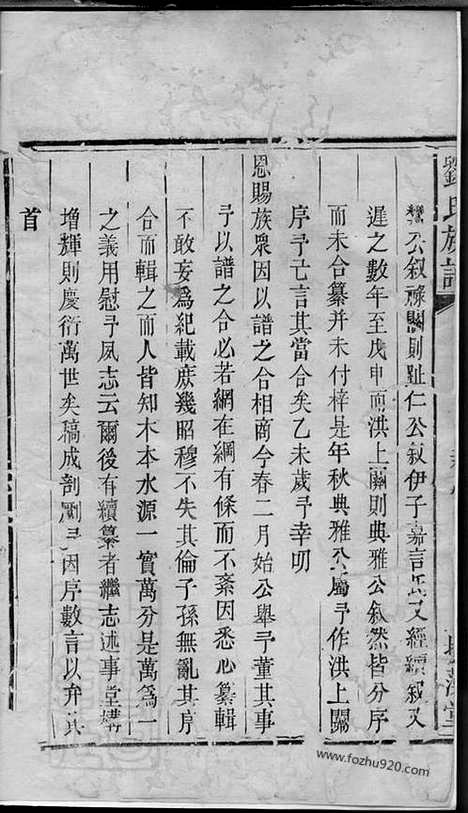 劉氏族譜
公叙祿關則趾仁公叙伊子嘉言氏又經續叙又
遲之數年至戊申而洪上關則典雅公叙然皆分序
而未合纂并未付梓是年秋典雅公屬予作洪上關
序予亡言其當合矣乙未歲予幸叨
恩賜族衆因以譜之合相商今春二月始公舉予董其事
予以譜之合必若網在綱有條而不紊因悉心纂輯
不敢妄爲紀載庶幾昭穆不失其倫子孫無亂其序
合而輯之而人皆知木本水源一實萬分是萬爲一
之義用慰予夙志云爾後有續纂者繼志述事堂構
增輝則慶衍萬世矣稿成剞劂予因序數言以弁其
首
www.fozhu920.com